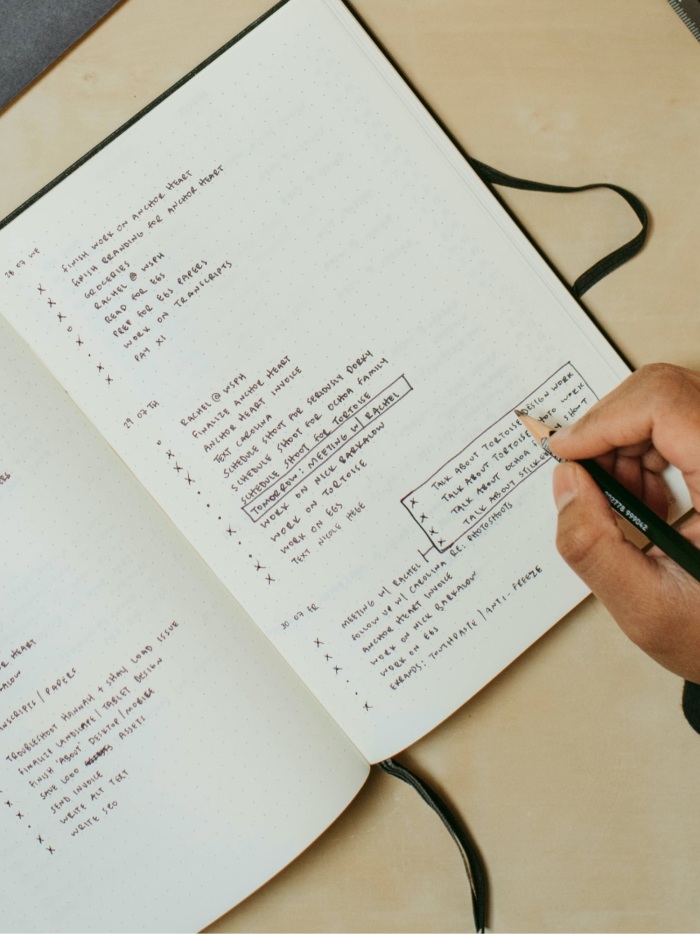 FINISH WORK ON ANCHOR HEART
FINISH BRANDING FOR ANCHOR HEART
GROCERIES
RACHEL @ WSPH
READ FOR EGS
PREP FOR EGS PAPERS
WORK ON TRANSCRIPTS
PAY XI
29 07 TH
RACHEL @ WSPH
FINALIZE ANCHOR HEART
ANCHOR HEART INVOICE
TEXT CAROLINA
SCHEDULE SHOOT FOR SERIOUSLY DORKY
SCHEDULE SHOOT FOR OCHOA FAMILY
SCHEDULE SHOOT FOR TORTOISE
TOMORROW: MEETING W/ RACHEL
WORK ON NICK BARKALOW
WORK ON TORTOISE
WORK ON EGS
TEXT NICOLE
30 07 FR
MEETING W/ RACHEL
TALK ABOUT TORTOISE DESIGN WORK
TALK ABOUT TORTOISE PHOTO WORK
TALK ABOUT OCHOA SHOOT
TALK ABOUT
FOLLOW UP W/ CAROLINA RE: PHOTOSHOOTS
ANCHOR HEART INVOICE
WORK ON NICK BARKALOW
WORK ON EGS
ERRANDS: TOOTHPASTE / ANTI-FREEZE
HEART
TRANSCRIPTS / PAPERS
TROUBLESHOOT HANNAH + SHAY LOAD ISSUE
FINALIZE LANDSCAPE / TABLET DESIGN
FINISH "ABOUT" DESKTOP / MOBILE
SAVE LOGO ASSETS
SEND INVOICE
WRITE ALT TEXT
WRITE SEO